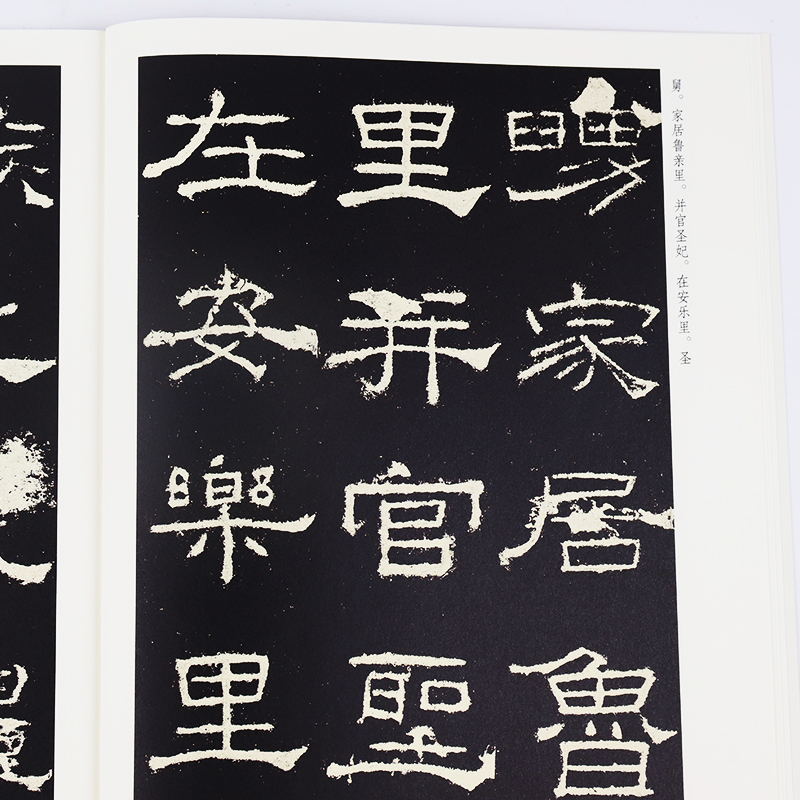 舅。家居鲁亲里。并官圣妃。在安乐里。圣
舅家居魯
里并官聖
在安樂里